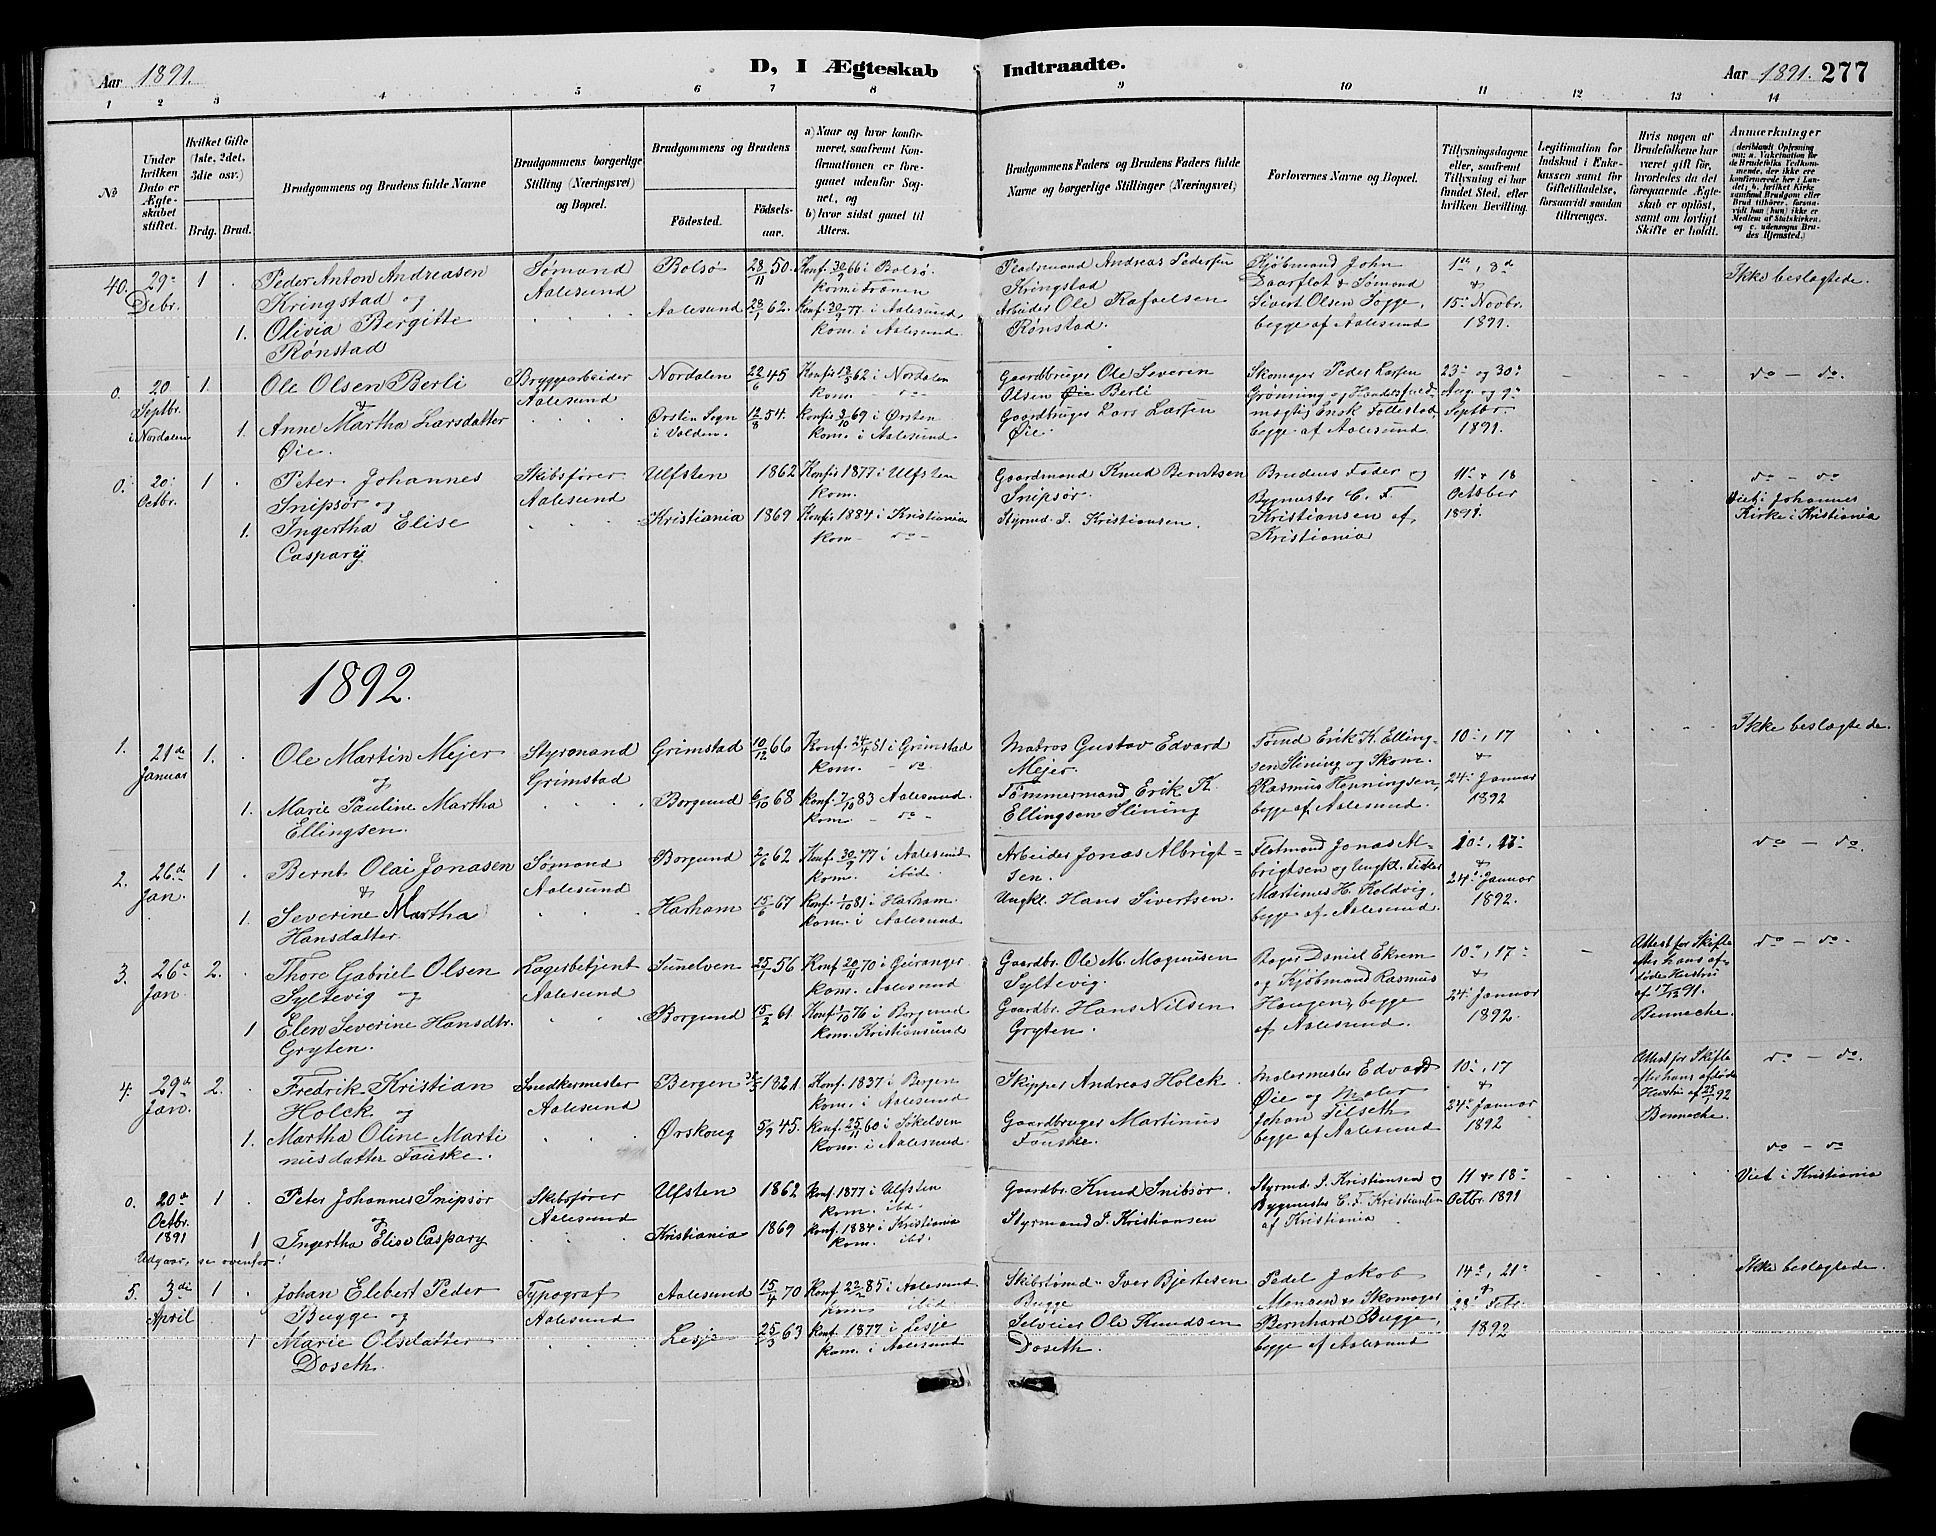 Aar 1891.
D, I Ægteskab Indtraadte.
Aar 1891. 277
1 2 3 4 5 6 7 8 9 10 11 12 13 14
№
Under hvilken Dato er Ægteskabet stiftet.
Hvilket Gifte (1ste, 2det, 3die osv.)
Brdg. Brud.
Brudgommens og Brudens fulde Navne
Brudgommens borgerlige Stilling (Næringsvei) og Bopæl.
Brudgommens og Brudens
Födested. Födselsaar.
a) Naar og hvor konfirmeret, saafremt Konfirmationen er foregaaet udenfor Sognet, og
b) hvor sidst gaaet til Alters.
Brudgommens Faders og Brudens Faders fulde Navne og borgerlige Stillinger (Næringsvei)
Forlovernes Navne og Bopæl.
Tillysningsdagene eller, saafremt Tillysning ei har fundet Sted, efter hvilken Bevilling.
Legitimation for Indskud i Enkekassen samt for Giftetilladelse, forsaavidt saadan tiltrænges.
Hvis nogen af Brudefolkene har været gift før, hvorledes da det foregaaende Ægteskab er oplöst, samt om lovligt Skifte er holdt.
Anmærkninger (deriblandt Oplysning om: a. Vakcination for de Brudefolks Vedkommende, der ikke ere konfirmerede her i Landet; b. hvilket Kirkesamfund Brudgom eller Brud tilhörer, forsaavidt han (hun) ikke er Medlem af Statskirken, og c. udensogns Brudes Hjemsted.)
40. 29de Debr. 1 . Peder Anton Andreasen Kringstad og
Sømand Aalesund
Bolsø 28/11 50. Konf. 30/9 66 i Bolsø. kom. i Frænen
Andreas Pedersen Kringstad
Kjøbmand John Daarflot & Sømand Sivert Olsen Fogge, begge af Aalesund
1ste, 8de & 15de Novbr. 1891.
Ikke beslægtede.
1. Olivia Bergitte Rønstad
Aalesund 23/1 62. Konf. 30/9 77 i Aalesund, kom. i Aalesund
Arbeider Ole Rafaelsen Rønstad.
0. 20 Septbr. i Nordalen 1. Ole Olsen Berli &
Bryggearbeider Aalesund
Nordalen 22/6 45 Konfir 18/5 62 i Nordalen kom - do -
Gaardbruger Ole Severin Olsen Berli
Skomager Peder Larsen Grønning og Handelsfuldmægtig Ensk Follestad begge af Aalesund
23de og 30te Aug. og 9de Septbr. 1891.
do - do.
1. Anne Martha Larsdatter Øie.
Ørsten Sogn i Volden. 12/8 54. Konfir 3/10 69 i Ørsten kom. i Aalesund
Gaardbruger Lars Larsen Øie.
0. 20. Octbr. 1 . Peter Johannes Snipsør og
Skibsfører Aalesund
Ulfsten 1862 Konfir 1877 i Ulfsten kom.
Gaardmand Knud Berntsen Snipsør.
Brudens Fader og Bygmester C. F. Kristiansen af Kristiania
11te & 18 October 1891.
do - do
Viet i Johannes Kirke i Kristiania
1. Ingertha Elise Caspary
Kristiania 1869 Konfir 1884 i Kristiania kom - do -
Styrmd. J. Kristiansen.
1892.
1. 21de Januar 1. Ole Martin Mejer og
Styrmand Grimstad
Grimstad 10/12 66 Konf. 24/4 81 i Grimstad kom. - do
Matros Gustav Edvard Mejer.
Tømd Erik K. Ellingsen Slining og Skom. Rasmus Henningsen, begge af Aalesund.
10de, 17 & 24de Januar 1892
Ikke beslægtede.
1. Marie Pauline Martha Ellingsen.
Borgund 6/10 68 Konf. 7/10 83 Aalesund. kom. - do -
Tømmermand Erik K. Ellingsen Slining
2. 26de Jan. 1 . Bernt Olai Jonasen &
Sømand Aalesund
Borgund 2/6 62 Konf. 30/9 77 i Aalesund kom. ibid.
Arbeider Jonas Albrigtsen.
Flotmand Jonas Albrigtsen og Ungkl. Martinus H. Koldvig, begge af Aalesund.
10de, 17de & 24de Januar 1892.
do - do.
1. Severine Martha Hansdatter.
Harham 15/6 67 Konf. 1/10 81 i Harham kom. i Aalesund
Ungkl. Hans Sivertsen.
3. 26de Jan. 2. Thore Gabriel Olsen Syltevig og
Lagerbetjent Aalesund
Sunelven 25/1 56 Konf 20/11 70 i Geiranger kom. Aalesund
Gaardbr. Ole M. Magnusen Syltevig.
Bager Daniel Ekrem og Kjøbmand Rasmus Haugen, begge af Aalesund.
10de, 17de & 24de Januar 1892.
Attest for Skifte efter hans afdøde Hustru af 17/12 91. Benneche.
do - do.
1 Elen Severine Hansdtr. Gryten.
Borgund 15/2 61 Konf. 1/10 76 i Borgund kom. Kristiansund
Gaardbr. Hans Nilsen Gryten.
4. 29de Jan. 2. Fredrik Kristian Holck og
Snedkermester Aalesund
Bergen 1821 Konf. 1837 i Bergen kom. i Aalesund
Skipper Andreas Holck.
Malermester Edvard Øie og Maler Johan Tilseth begge af Aalesund
10de, 17 & 24de Januar 1892
Attest for Skifte efter hans afdøde Hustru af 25/1 92 Benneche.
do - do.
1. Martha Oline Martinusdatter Fauske.
Ørskoug 5/9 45. Konf. 25/11 60 i Søkelven kom. i Aalesund.
Gaardbruger Martinus Fauske.
0. 20de Octbr. 1891 1 . Peter Johannes Snipsør og
Skibsfører Aalesund
Ulfsten 1862 Konf. 1877 i Ulfsten kom. ibd.
Gaardbr. Knud Snibsør.
Styrmd. J. Kristiansen og Bygmester C. F. Kristiansen af Kristiania
11 & 18de Octbr. 1891
do - do
Viet i Kristiania
1 Ingertha Elise Caspary
Kristiania 1869 Konf. 1884 i Kristiania kom. ibd.
Styrmand J. Kristiansen
Udgaar, se ovenfor!
5. 3die April 1 . Johan Elebert Peder Bugge og
Typograf Aalesund
Aalesund 15/4 70 Konf. 22/2 85 i Aalesund kom ibid.
Skibstømd. Iver Bjertesen Bugge
Pedel Jakob Monsen & Skomager Bernhard Bugge, begge af Aalesund
14de, 21de & 28de Febr. 1892
Ikke beslægtede.
1 Marie Olsdatter Doseth.
Lesje 25/3 63 Konf. 1877 i Lesje kom. i Aalesund
Selveier Ole Knudsen Doseth.